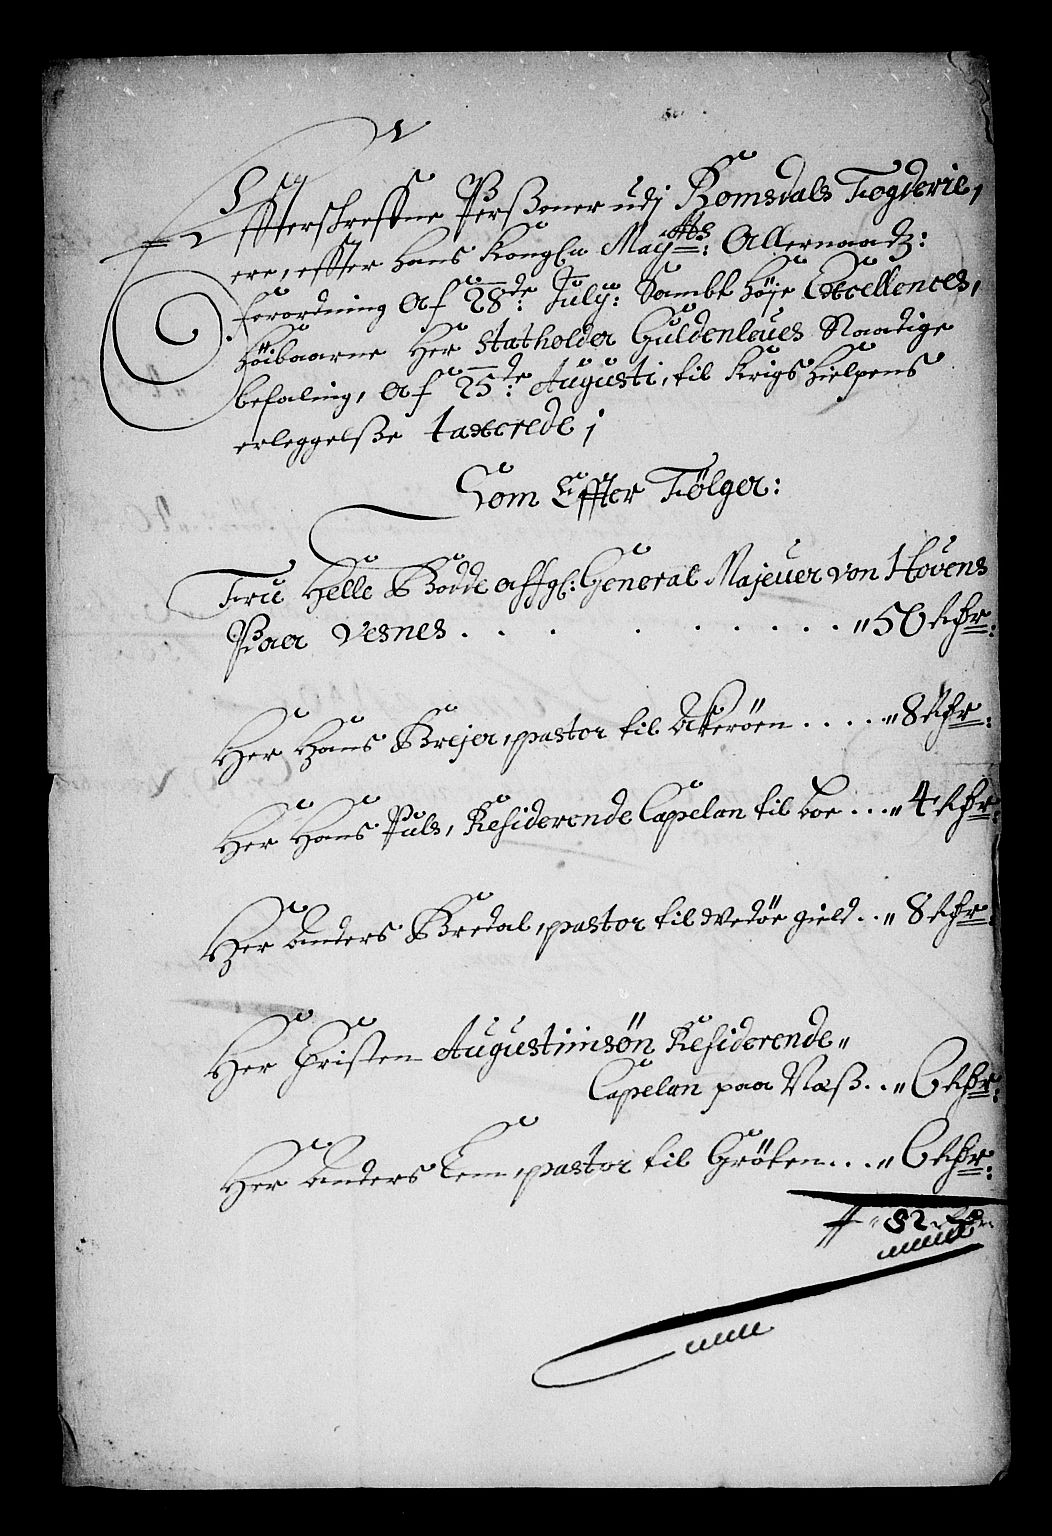 Effterschreffne Perßoner udj Romsdals Fogderie,
ere, effter Hans Kongl: Maytts: Allernaadz:
forordning Af 28de July: Sambt Höje Excellences,
Höibaarne Her Statholder Guldenleues Naadige
befaling, Af 25de Augusti, til Krigs Hielpens
erleggelße taxerede;
Som Effter Fölger:
Fru Helle Rodde affgl: General Majeuer von Hovens
Paa Vesnes . . . . . . . . . " 50 Rdr:
Her Hans Brejer, pastor til Akeröen . . . . " 8 Rdr:
Her Hans Puls, Residerende Capelan til Boe . . . " 4 Rdr:
Her Anders Bredal, pastor til Wedöe gield . . " 8 Rdr:
Her Christen Augustinsön Residerende "
Capelan paa Næß . . " 6 Rdr:
Her Anders Tem, pastor til Gröten . . . " 6 Rdr:
" 82 Rdr